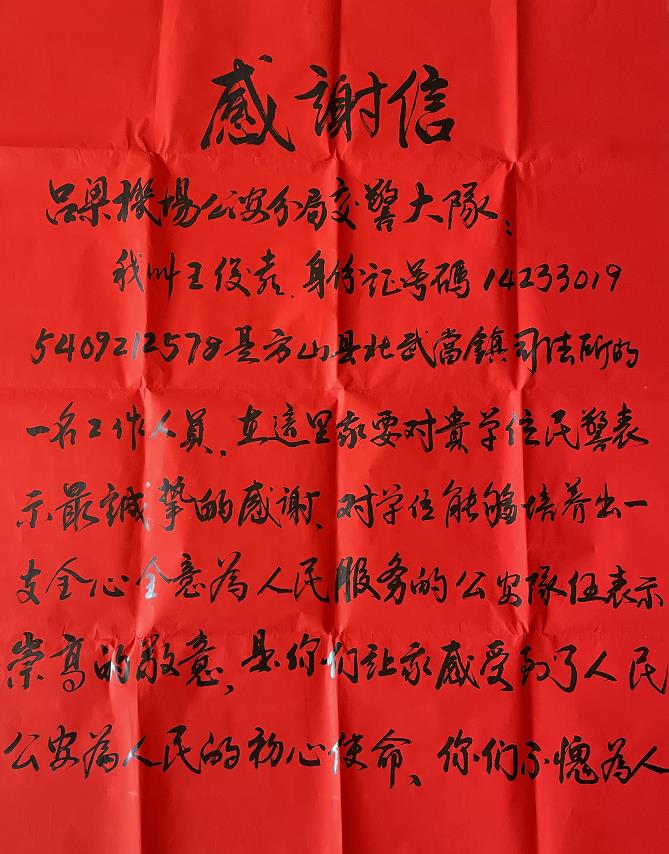 感謝信
吕梁機場公安分局交警大隊：
我叫王俊青，身份证号碼14233019
5409212578是方山县北武當鎮司法所的
一名工作人員，在這里我要对貴单位民警表
示最誠挚的感謝，对单位能够培养出一
支全心全意為人民服务的公安隊伍表示
崇高的敬意，是你们让我感受到了人民
公安為人民的初心使命，你们不愧為人